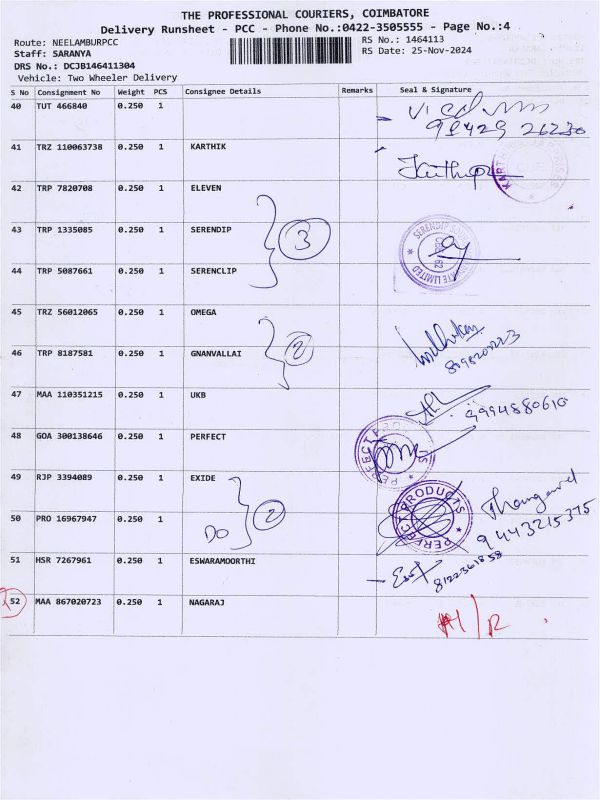 THE PROFESSIONAL COURIERS, COIMBATORE
Delivery Runsheet - PCC - Phone No.:0422-3505555 - Page No.:4
Route: NEELAMBURPCC
Staff: SARANYA
DRS No.: DCJB146411304
Vehicle: Two Wheeler Delivery
RS No.: 1464113
RS Date: 25-Nov-2024
S No Consignment No Weight PCS Consignee Details Remarks Seal & Signature
40 TUT 466840 0.250 1
99429 26230
41 TRZ 110063738 0.250 1 KARTHIK
42 TRP 7820708 0.250 1 ELEVEN
43 TRP 1335085 0.250 1 SERENDIP
3
44 TRP 5087661 0.250 1 SERENCLIP
45 TRZ 56012065 0.250 1 OMEGA
46 TRP 8187581 0.250 1 GNANVALLAI
2
47 MAA 110351215 0.250 1 UKB
9994880610
48 GOA 300138646 0.250 1 PERFECT
49 RJP 3394089 0.250 1 EXIDE
PERFECT PRODUCTS
Thangavel
9443215375
50 PRO 16967947 0.250 1
DO 2
51 HSR 7267961 0.250 1 ESWARAMOORTHI
8122361858
52 MAA 867020723 0.250 1 NAGARAJ